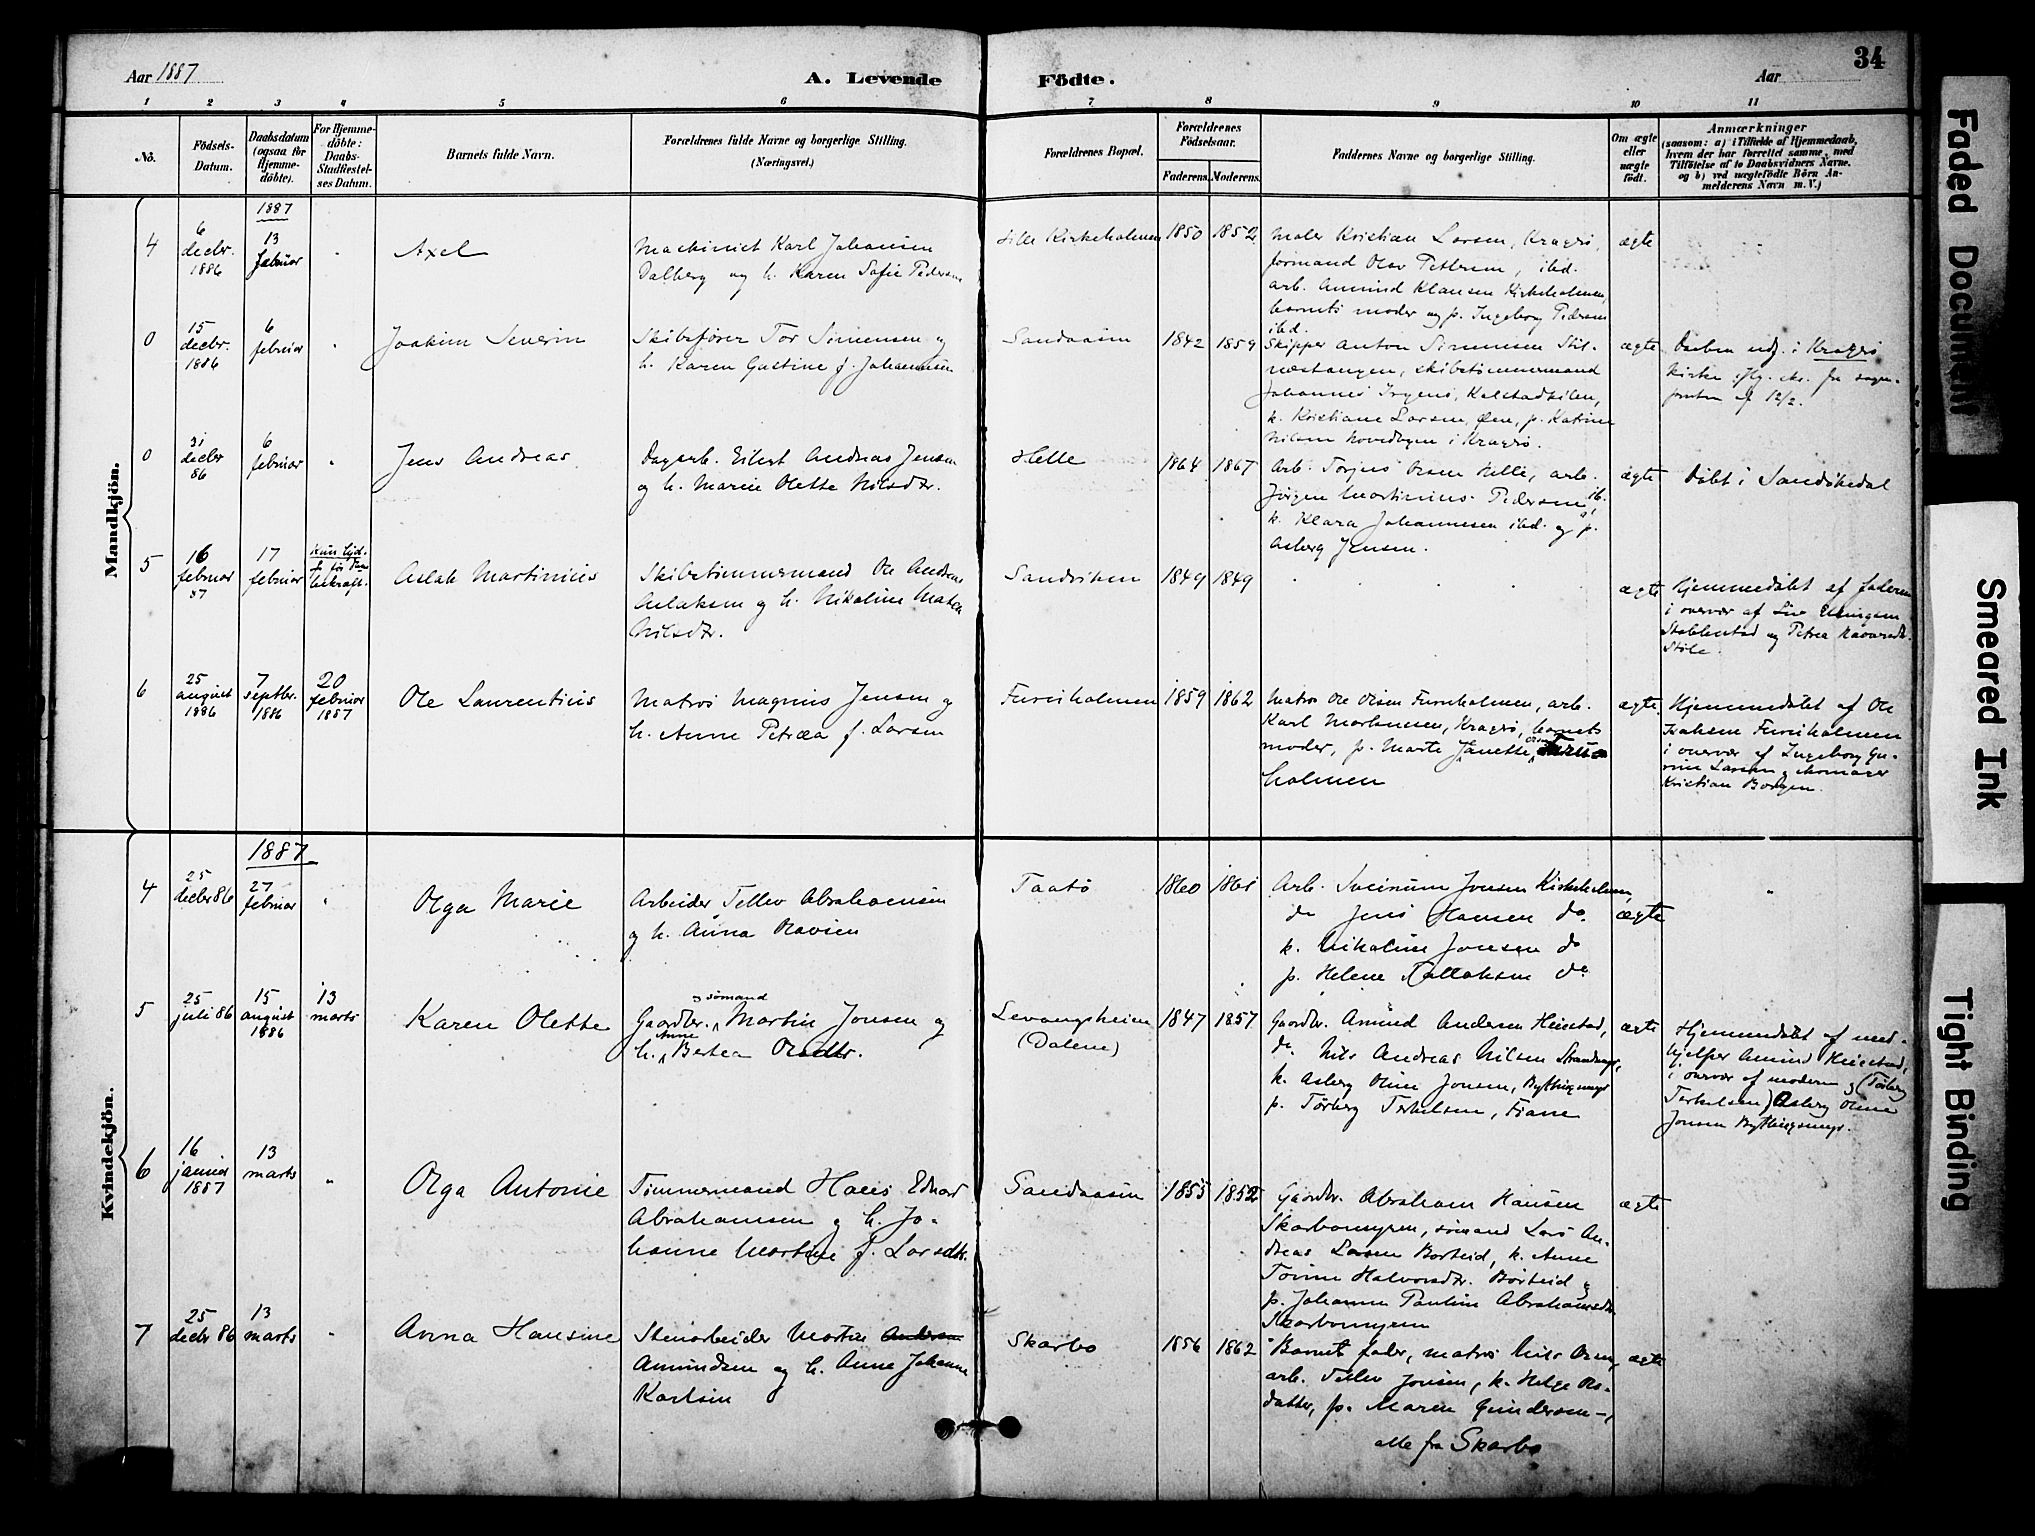 34
Aar 1887
A. Levende Födte.
Aar
1 2 3 4 5 6 7 8 9 10 11
No.
Födsels-Datum.
Daabsdatum (ogsaa for Hjemme-döbte).
For Hjemme-döbte: Daabs-Stadfæstel-ses Datum.
Barnets fulde Navn.
Forældrenes fulde Navne og borgerlige Stilling.
(Næringsvei.)
Forældrenes Bopæl.
Forældrenes Födselsaar.
Faderens. Moderens.
Faddernes Navne og borgerlige Stilling.
Om ægte eller uægte födt.
Anmærkninger
(saasom: a) i Tilfælde af Hjemmedaab,
hvem der har forrettet samme, med
Tilföielse af to Daabsvidners Navne,
og b) ved uægtefödte Börn An-
melderens Navn m. V.)
Mandkjön.
1887
4
6 decbr. 1886
13 februar
Axel
Machinist Karl Johansen
Dalberg og h. Karen Sofie Pedersen
Kirkeholmen
1850 1852
Maler Kristian Larsen, Kragrö,
formand Olav Pettersen, ibd.
arb. Amund Klausen Kirkeholmen,
barnets moder og p. Ingeborg Pedersen
ibd.
ægte
0
15 decbr. 1886
6 februar
Joakim Severin
Skibsfører Tor Sörensen og
h. Karen Gustine f. Johannesen
Sandaasen
1842 1859
Skipper Anton Sörensen Stil-
næstangen, skibstömmermand
Johannes Irgens, Kalstadkilen,
k. Kristiane Larsen, Øen, p. Katrine
Nilsen hovedbyen i Kragrö.
ægte
Daaben udf. i Kragrö
kirke ifölg. fra sogne-
presten af 12/2.
0
31 decbr 86
6 februar
Jens Andreas
Dagarb. Eilert Andreas Jensen
og h. Maren Olette Nilsdtr.
Helle
1864 1867
Arb. Torjus Olsen Helle, arb.
Jörgen Martinius Pedersen ib.,
k. Klara Johannesen ibd. og p.
Asberg Jensen.
ægte
Döbt i Sandökedal
5
16 februar 87
17 februar
Aslak Martinius
Skibstömmermand Ole Andreas
Aslaksen og h. Nikoline Maten
Nilsdtr.
Sandviken
1849 1849
ægte
Hjemmedöbt af faderen
i overvær af Elling
Stabbestad og Petrea
Stöle.
6
25 august 1886
7 septbr. 1886
20 februar 1887
Ole Laurentius
Matros Magnus Jensen og
h. Anne Petræa f. Larsen
Furuholmen
1859 1862
Matros Ole Olsen Furuholmen, arb.
Karl Mortensen, Kragrö, barnets
moder, p. Marte Janette Furu-
holmen
ægte.
Hjemmedöbt af Ole
Isaksen Furuholmen
i overvær af Ingeborg Gu-
rine Larsen og
Kristian Borgen.
Kvindekjön.
1887
4
25 decbr 86
27 februar
Olga Marie
Arbeider Tellev Abrahamsen
og h. Anna Olavsen
Taatö
1860 1861
Arb. Jonsen Kirkeholmen,
do Jens Hansen do.
k. Nikoline Jonsen do
p. Helene Tallaksen do
ægte
5
25 juli 86
15 august 1886
13 marts
Karen Olette
og sömand
Gaardbr. Martin Jonsen og
h. Anne Bertea Olsdtr.
Levangsheien
(Dalene)
1847 1857
Gaardbr. Amund Andersen Heiestad,
do. Nils Andreas Nilsen
k. Asberg Oline Jonsen, Bythingsmyr
p. Törberg Terkelsen, Fiane
ægte
Hjemmedöbt af med-
hjelper Amund Heiestad,
i overvær af moderen og (Törberg
Terkelsen) Asberg Oline
Jonsen Bythingsmyr.
6
16 januar 1887
13 marts
Olga Antonie
Tömmermand Hans Edvard
Abrahamsen og h. Jo-
hanne Martine f. Larsdtr.
Sandaasen
1855 1852
Gaardbr. Abraham Hansen
Skarbomyren, sömand Lars An-
dreas Larsen Borteid, k. Anne
Tomine Halvorsdtr. Borteid og
p. Johanne Pauline Abrahamsdtr.
Skarbomyren
ægte
7
25 decbr 86
13 marts
Anna Hansine
Stenarbeider Martin Andersen
Amundsen og h. Anne Johanne
Karlsen
Skarbo
1856 1862
Barnets fader, matros Nils Olsen,
arb. Tellev Jonsen, k. Helge Ols-
datter, p. Maren Gundersen –,
alle fra Skarbo
ægte
Faded Document
Smeared Ink
Tight Binding